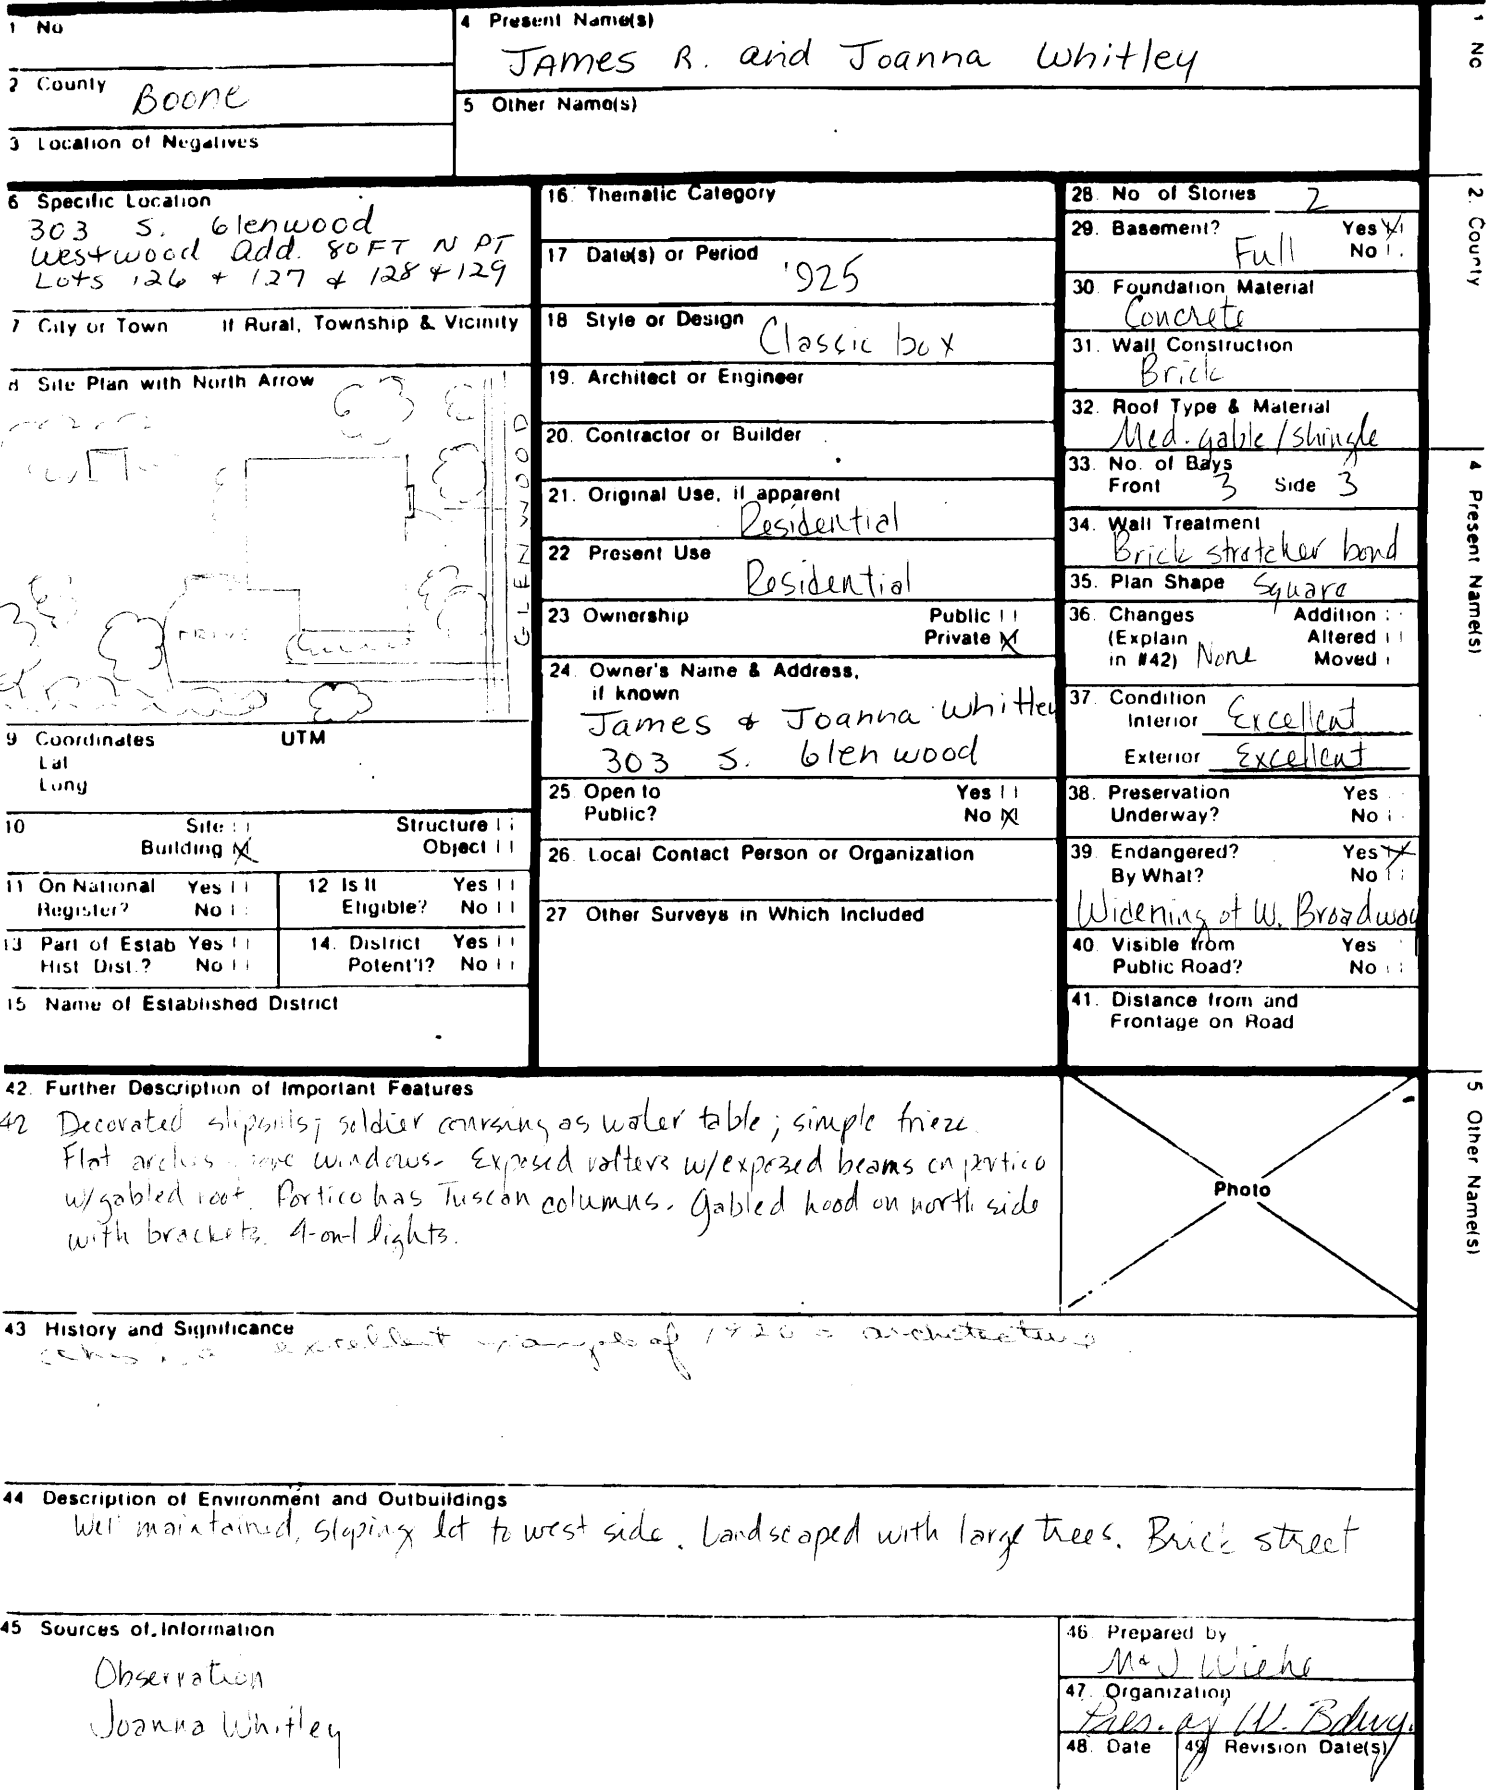 1 No
4 Present Name(s)
James R. and Joanna Whitley
2 County
Boone
5 Other Name(s)
3 Location of Negatives
6 Specific Location
303 S. Glenwood
Westwood Add. 80 FT N PT
Lots 126 + 127 & 128 + 129
7 City or Town If Rural, Township & Vicinity
8 Site Plan with North Arrow
GLENWOOD
DRIVE
9 Coordinates UTM
Lat
Long
10 Site
Structure
Building
Object
11 On National Register? Yes No
12 Is It Eligible? Yes No
13 Part of Estab Hist Dist.? Yes No
14. District Potent'l? Yes No
15 Name of Established District
16. Thematic Category
17 Date(s) or Period
'925
18 Style or Design
Classic box
19. Architect or Engineer
20. Contractor or Builder
21. Original Use, if apparent
Residential
22 Present Use
Residential
23 Ownership Public
Private X
24. Owner's Name & Address,
if known
James & Joanna Whitley
303 S. Glenwood
25 Open to Yes
Public? No X
26. Local Contact Person or Organization
27 Other Surveys in Which Included
28. No of Stories 2
29. Basement? Yes
Full No
30. Foundation Material
Concrete
31. Wall Construction
Brick
32. Roof Type & Material
Med. gable / shingle
33. No. of Bays
Front 3 Side 3
34. Wall Treatment
Brick stretcher bond
35. Plan Shape Square
36. Changes Addition
(Explain Altered
in #42) None Moved
37. Condition
Interior Excellent
Exterior Excellent
38. Preservation Yes
Underway? No
39. Endangered? Yes
By What? No
Widening of W. Broadway
40. Visible from Yes
Public Road? No
41. Distance from and
Frontage on Road
42. Further Description of Important Features
42 Decorated slipsills; soldier coursing as water table; simple frieze.
Flat arches windows. Exposed rafters w/exposed beams on portico
w/gabled roof. Portico has Tuscan columns. Gabled hood on north side
with brackets. 4-on-1 lights.
Photo
43 History and Significance
excellent example of 1920 s architecture
44 Description of Environment and Outbuildings
Well maintained, sloping lot to west side. Landscaped with large trees. Brick street
45 Sources of Information
Observation
Joanna Whitley
46. Prepared by
M & J Wiehe
47. Organization
Pres. of W. Bdwy.
48. Date
49 Revision Date(s)
1 No
2. County
4 Present Name(s)
5 Other Name(s)